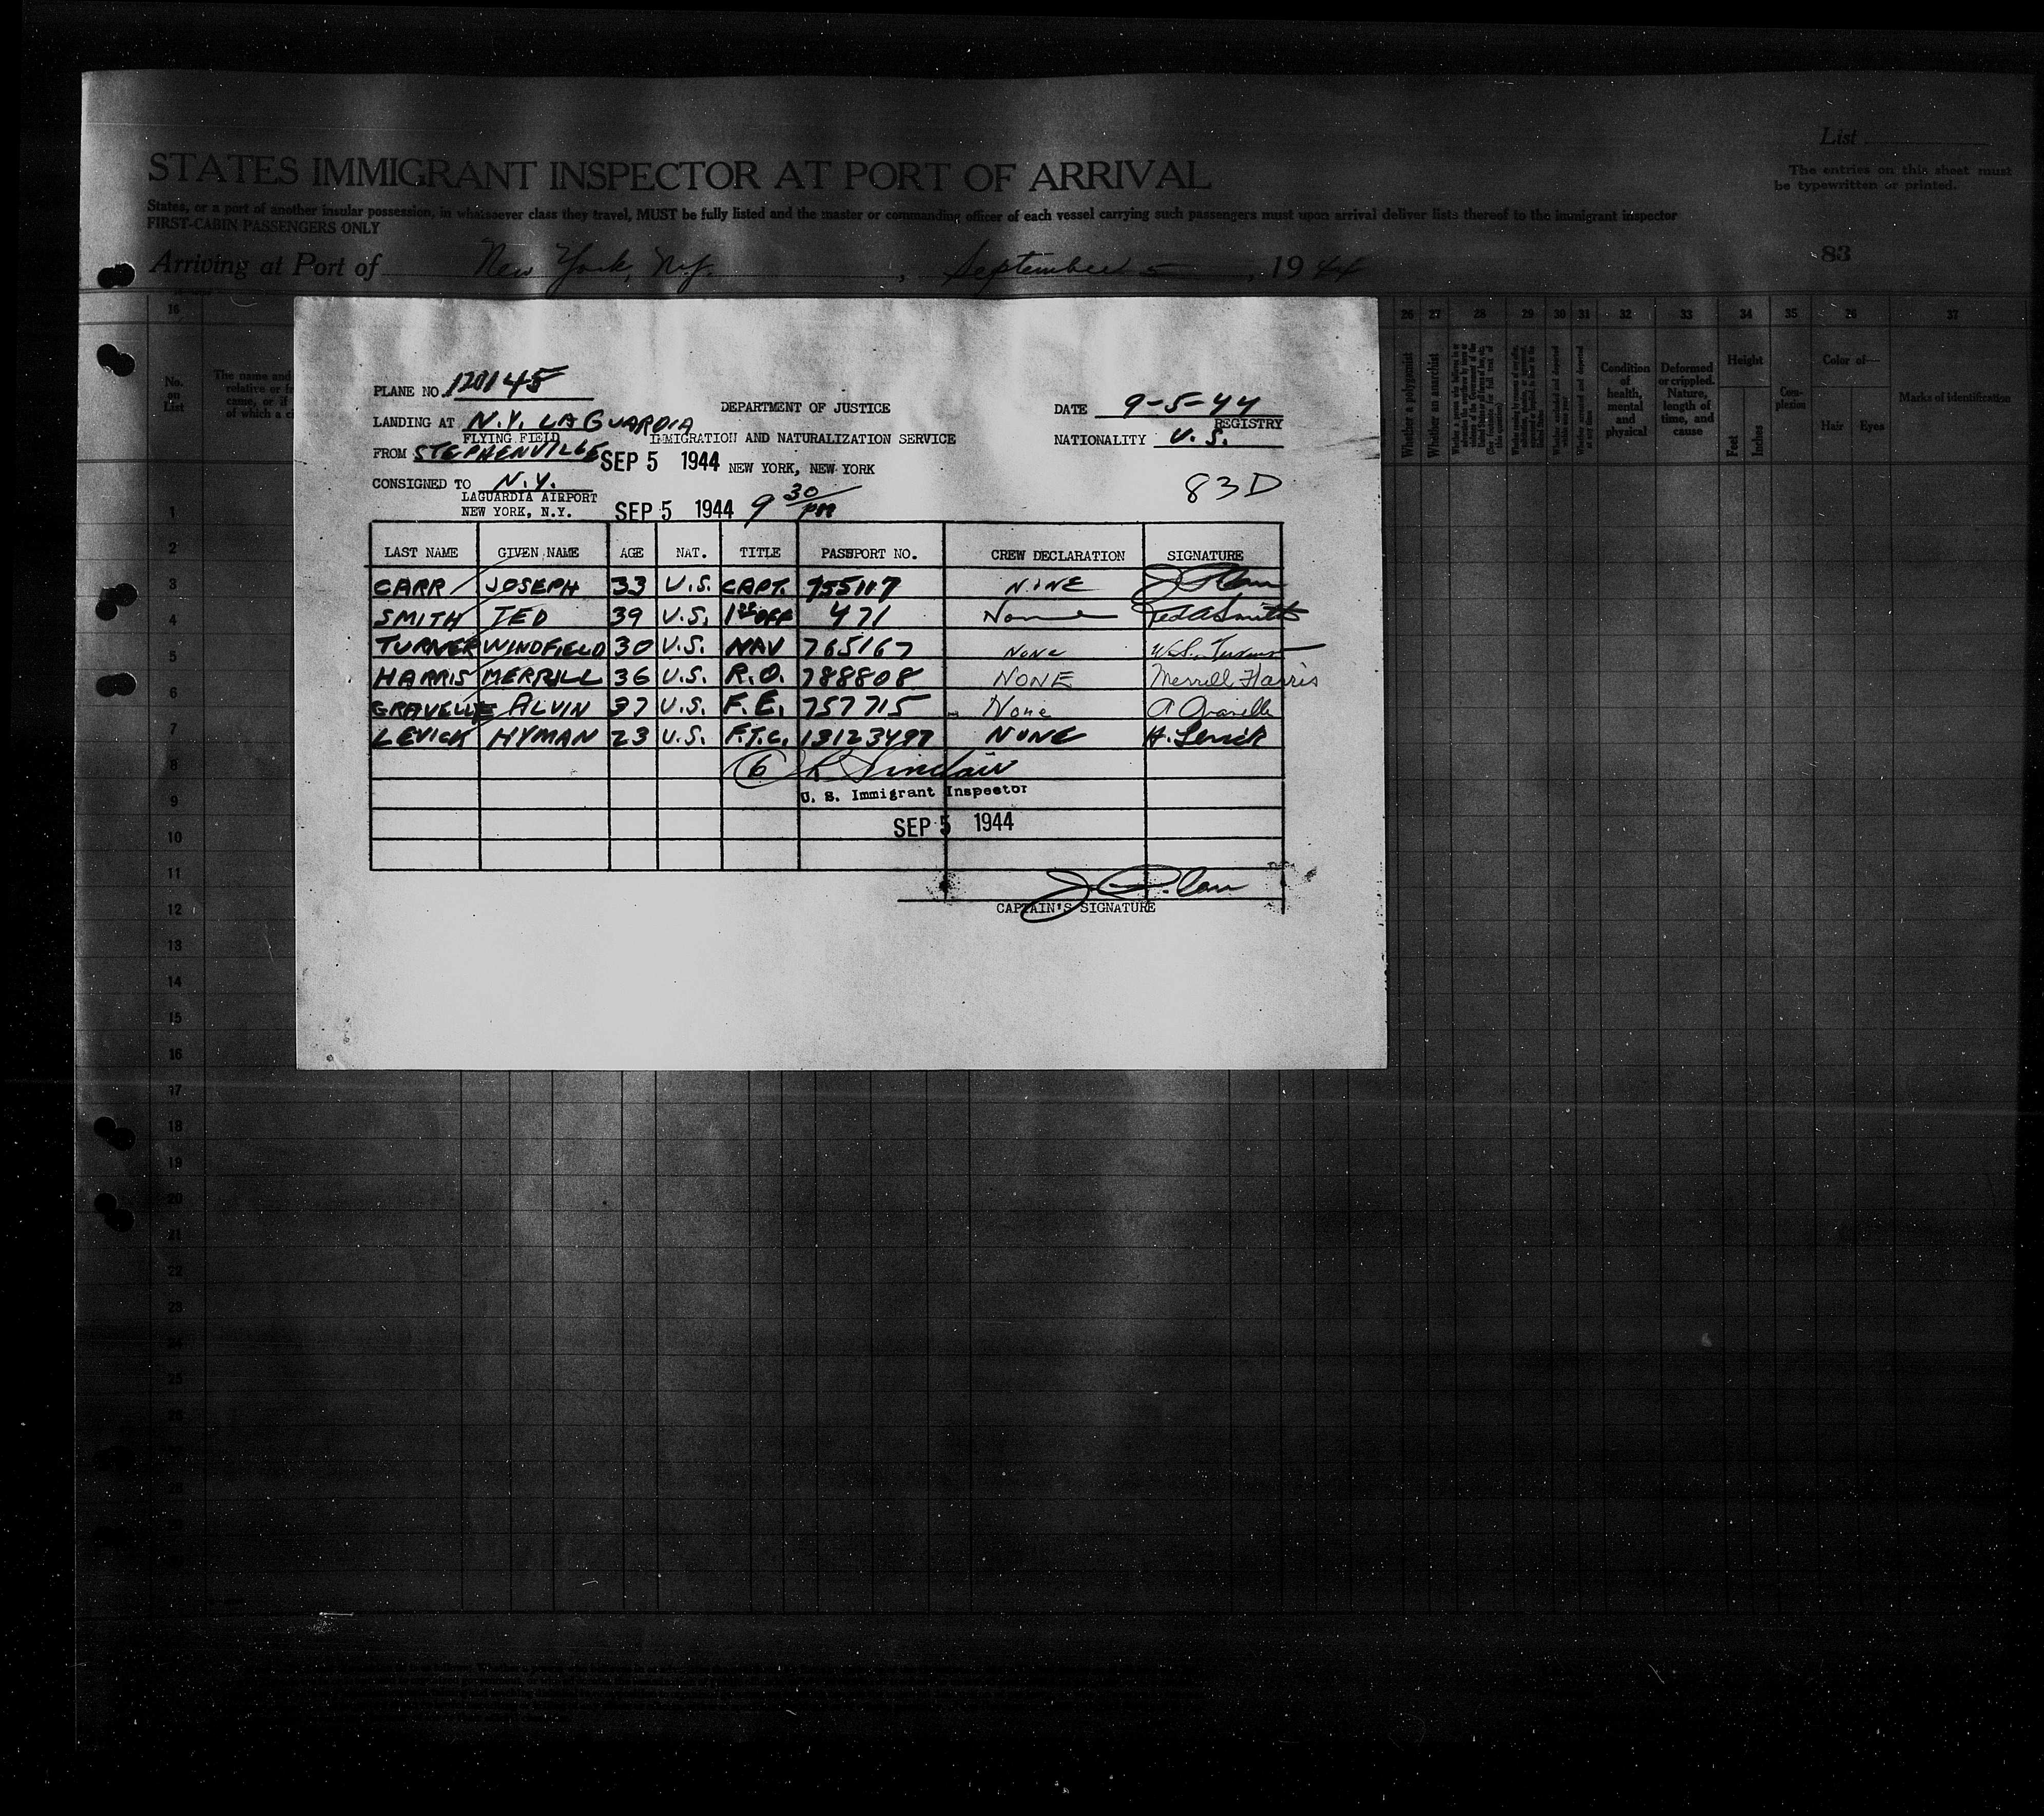 List
STATES IMMIGRANT INSPECTOR AT PORT OF ARRIVAL
The entries on this sheet must
be typewritten or printed.
States, or a port of another insular possession, in whatsoever class they travel, MUST be fully listed and the master or commanding officer of each vessel carrying such passengers must upon arrival deliver lists thereof to the immigrant inspector
FIRST-CABIN PASSENGERS ONLY
Arriving at Port of New York, N.Y., September 5, 1944
83
16 26 27 28 29 30 31 32 33 34 35 36 37
No. on List
The name and
relative or fr
came, or if
of which a ci
Whether a polygamist
Whether an anarchist
Condition of health, mental and physical
Deformed or crippled. Nature, length of time, and cause
Height
Feet Inches
Complexion
Color of—
Hair Eyes
Marks of identification
PLANE NO. 120145
DEPARTMENT OF JUSTICE
DATE 9-5-44
LANDING AT N.Y. LAGUARDIA
REGISTRY
FLYING FIELD IMMIGRATION AND NATURALIZATION SERVICE
NATIONALITY U.S.
FROM STEPHENVILLE SEP 5 1944 NEW YORK, NEW YORK
CONSIGNED TO N.Y.
83D
LAGUARDIA AIRPORT
NEW YORK, N.Y. SEP 5 1944 9 30 PM
LAST NAME GIVEN NAME AGE NAT. TITLE PASSPORT NO. CREW DECLARATION SIGNATURE
CARR JOSEPH 33 U.S. CAPT. 755117 NONE J P Carr
SMITH TED 39 U.S. 1st OFF 471 None Ted A Smith
TURNER WINDFIELD 30 U.S. NAV 765167 None W.S. Turner
HARRIS MERRILL 36 U.S. R.O. 788808 NONE Merrill Harris
GRAVELLE ALVIN 37 U.S. F.E. 757715 None A Gravelle
LEVICK HYMAN 23 U.S. F.T.C. 13123497 NONE H. Levick
6 Sinclair
U. S. Immigrant Inspector
SEP 5 1944
J. P. Carr
CAPTAIN'S SIGNATURE
1
2
3
4
5
6
7
8
9
10
11
12
13
14
15
16
17
18
19
20
21
22
23
24
25
26